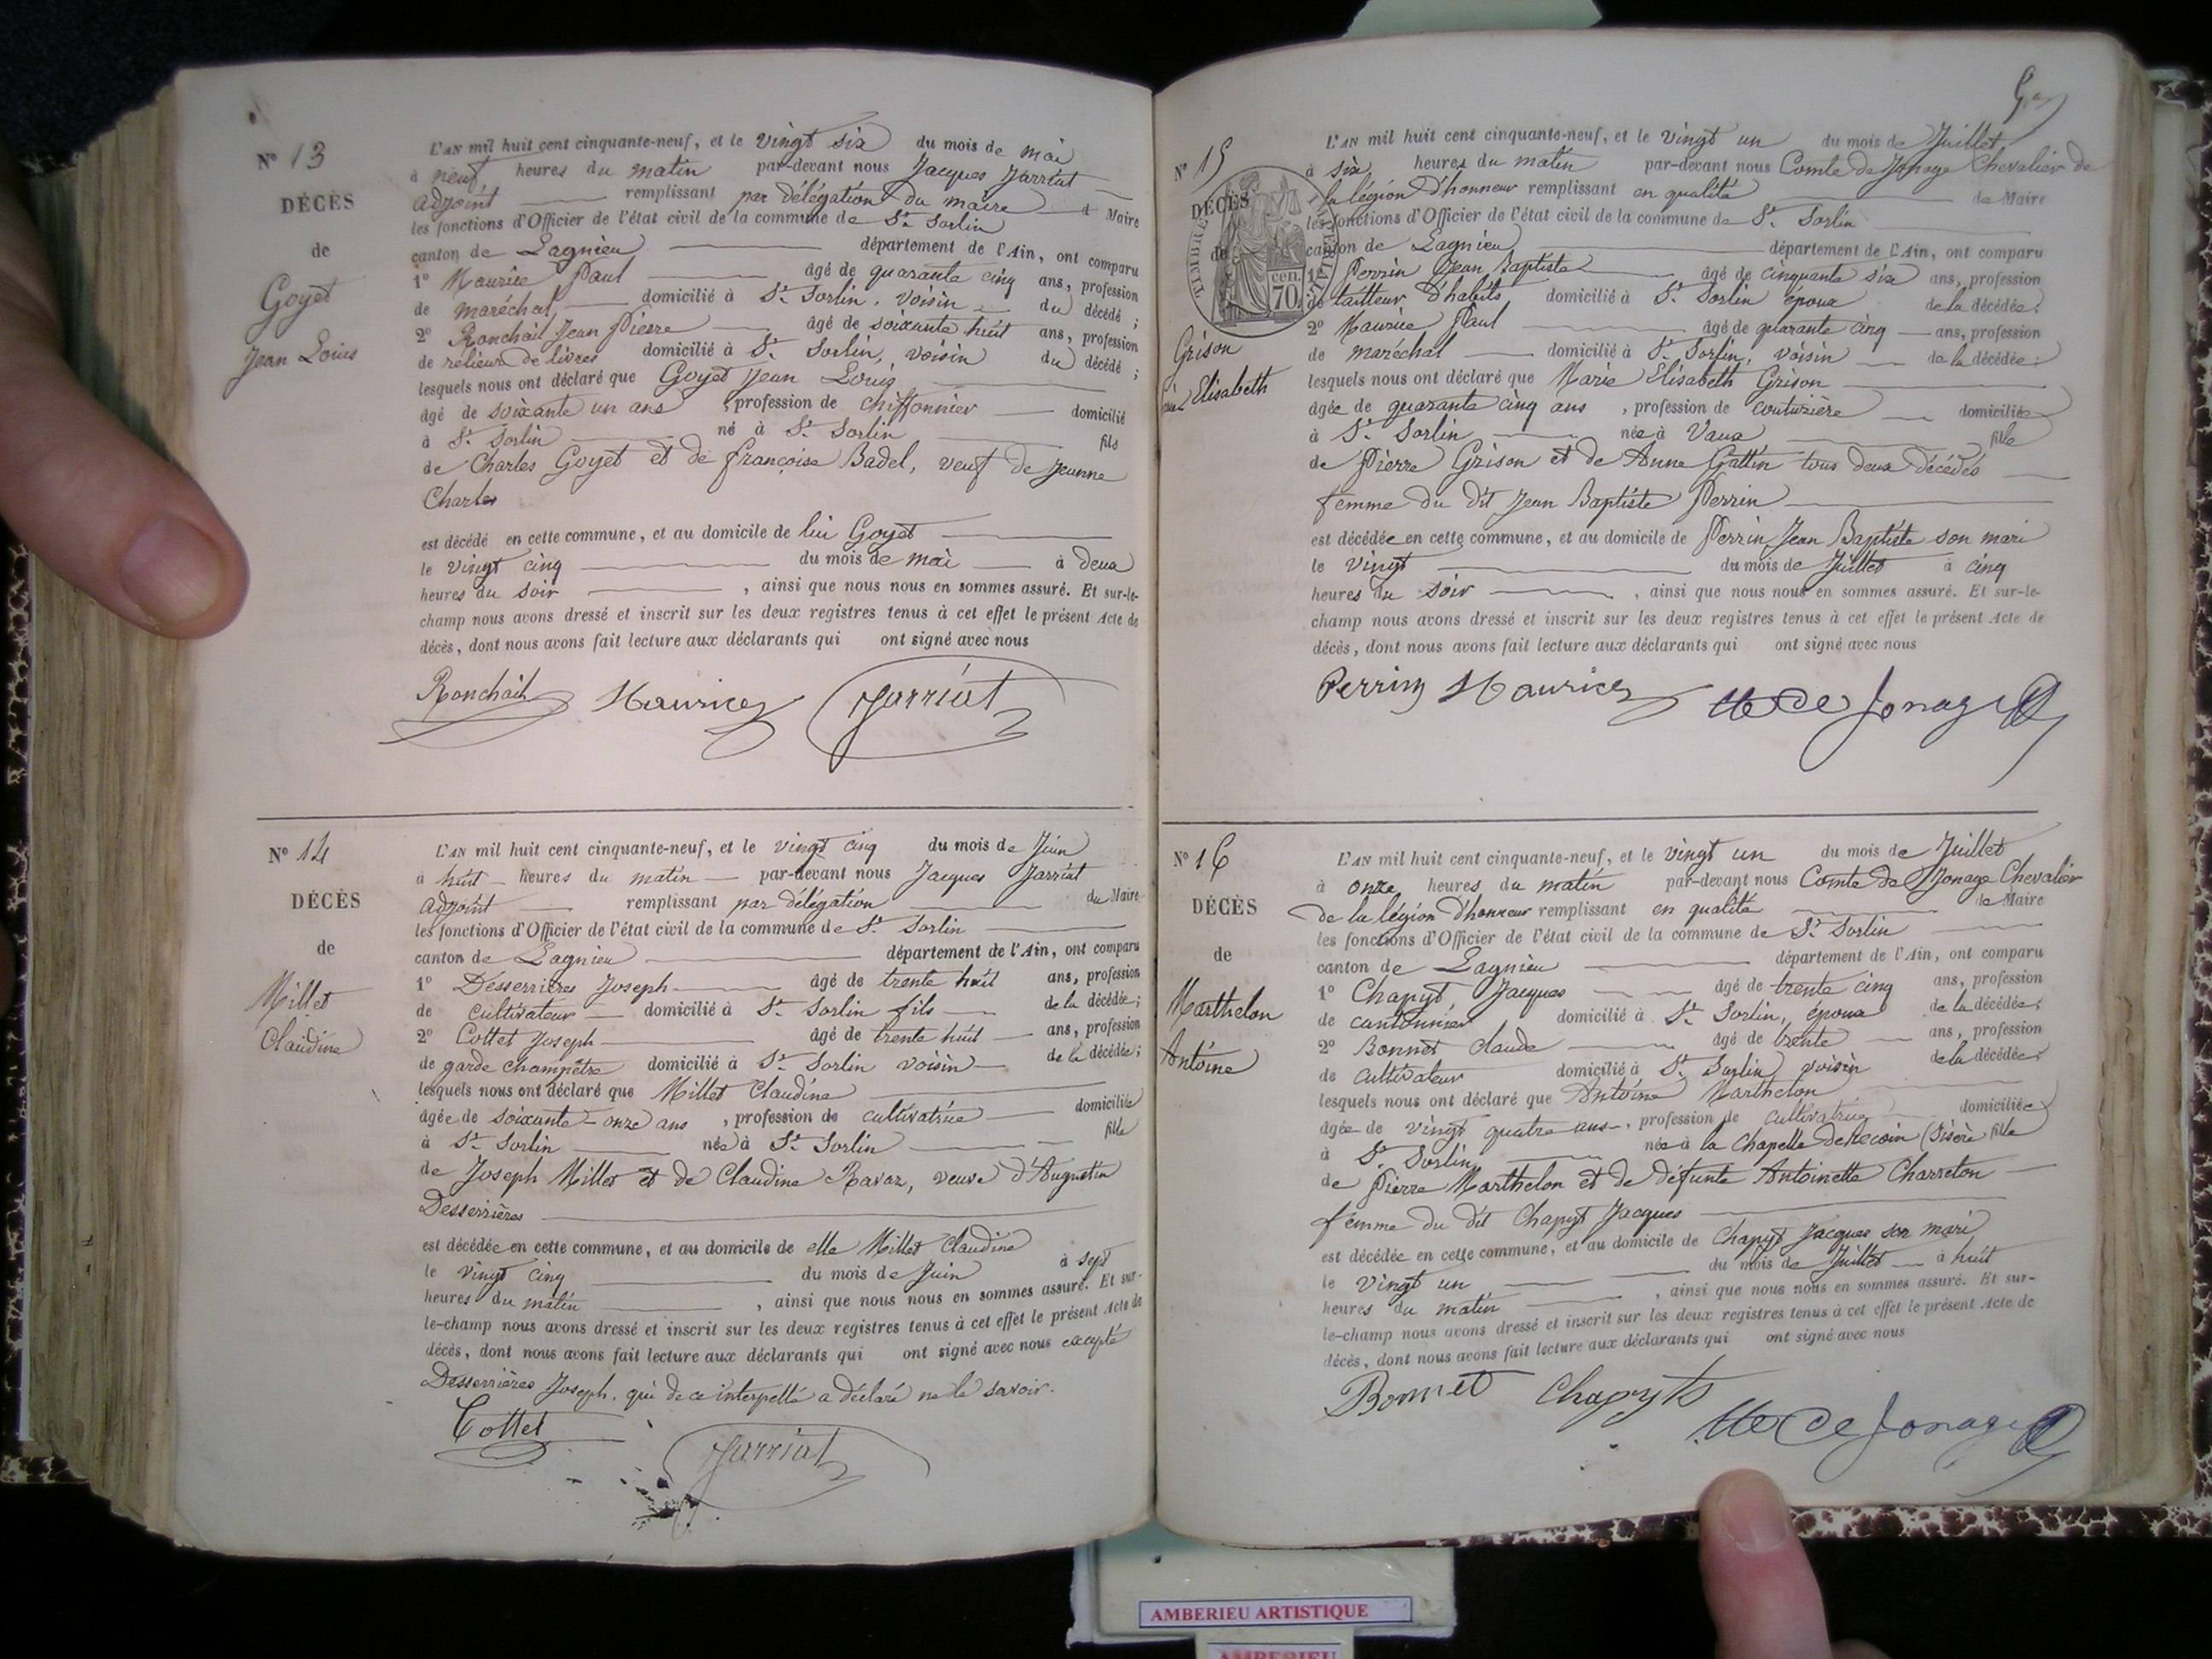 N° 13
DÉCÈS
de
Goyet
Jean Louis
L'AN mil huit cent cinquante-neuf, et le vingt six du mois de mai
à neuf heures du matin par-devant nous Jacques Jarriat
adjoint remplissant par délégation du maire d Maire
les fonctions d'Officier de l'état civil de la commune de St Sorlin
canton de Lagnieu département de l'Ain, ont comparu
1° Maurice Paul âgé de quarante cinq ans, profession
de maréchal domicilié à St Sorlin, voisin du décédé;
2° Ronchail Jean Pierre âgé de soixante huit ans, profession
de relieur de livres domicilié à St Sorlin, voisin du décédé;
lesquels nous ont déclaré que Goyet Jean Louis
âgé de soixante un ans, profession de chiffonnier domicilié
à St Sorlin né à St Sorlin fils
de Charles Goyet et de françoise Badel, veuf de Jeanne
Charles
est décédé en cette commune, et au domicile de lui Goyet
le vingt cinq du mois de mai à deux
heures du soir, ainsi que nous nous en sommes assuré. Et sur-le-
champ nous avons dressé et inscrit sur les deux registres tenus à cet effet le présent Acte de
décès, dont nous avons fait lecture aux déclarants qui ont signé avec nous
Ronchail Maurice Jarriat
N° 14
DÉCÈS
de
Millet
Claudine
L'AN mil huit cent cinquante-neuf, et le vingt cinq du mois de Juin
à huit heures du matin par-devant nous Jacques Jarriat
adjoint remplissant par délégation du Maire
les fonctions d'Officier de l'état civil de la commune de St Sorlin
canton de Lagnieu département de l'Ain, ont comparu
1° Desserrières Joseph âgé de trente huit ans, profession
de cultivateur domicilié à St Sorlin fils de la décédée;
2° Cottet Joseph âgé de trente huit ans, profession
de garde champêtre domicilié à St Sorlin voisin de la décédée;
lesquels nous ont déclaré que Millet Claudine
âgée de soixante-onze ans, profession de cultivatrice domiciliée
à St Sorlin née à St Sorlin fille
de Joseph Millet et de Claudine Ravaz, veuve d'Augustin
Desserrières
est décédée en cette commune, et au domicile de elle Millet Claudine
le vingt cinq du mois de Juin à sept
heures du matin, ainsi que nous nous en sommes assuré. Et sur-
le-champ nous avons dressé et inscrit sur les deux registres tenus à cet effet le présent Acte de
décès, dont nous avons fait lecture aux déclarants qui ont signé avec nous excepté
Desserrières Joseph, qui de ce interpellé a déclaré ne le savoir.
Cottet Jarriat
N° 15
DÉCÈS
de
TIMBRE
70 cen.
Grison
Elisabeth
L'AN mil huit cent cinquante-neuf, et le vingt un du mois de Juillet
à six heures du matin par-devant nous Comte de Jonage Chevalier de
la légion d'honneur remplissant en qualité de Maire
les fonctions d'Officier de l'état civil de la commune de St Sorlin
canton de Lagnieu département de l'Ain, ont comparu
1° Perrin Jean Baptiste âgé de cinquante six ans, profession
de tailleur d'habits domicilié à St Sorlin époux de la décédée;
2° Maurice Paul âgé de quarante cinq ans, profession
de maréchal domicilié à St Sorlin, voisin de la décédée;
lesquels nous ont déclaré que Marie Elisabeth Grison
âgée de quarante cinq ans, profession de couturière domiciliée
à St Sorlin née à Vaux fille
de Pierre Grison et de Anne Gattin tous deux décédés
femme du dit Jean Baptiste Perrin
est décédée en cette commune, et au domicile de Perrin Jean Baptiste son mari
le vingt du mois de Juillet à cinq
heures du soir, ainsi que nous nous en sommes assuré. Et sur-le-
champ nous avons dressé et inscrit sur les deux registres tenus à cet effet le présent Acte de
décès, dont nous avons fait lecture aux déclarants qui ont signé avec nous
Perrin Maurice de Jonage
N° 16
DÉCÈS
de
Marthelon
Antoine
L'AN mil huit cent cinquante-neuf, et le vingt un du mois de Juillet
à onze heures du matin par-devant nous Comte de Jonage Chevalier
de la légion d'honneur remplissant en qualité de Maire
les fonctions d'Officier de l'état civil de la commune de St Sorlin
canton de Lagnieu département de l'Ain, ont comparu
1° Chapyt, Jacques âgé de trente cinq ans, profession
de cantonnier domicilié à St Sorlin, époux de la décédée;
2° Bonnet claude âgé de trente ans, profession
de cultivateur domicilié à St Sorlin voisin de la décédée;
lesquels nous ont déclaré que Antoine Marthelon
âgée de vingt quatre ans, profession de cultivatrice domiciliée
à St Sorlin née à la Chapelle (Isère fille
de Pierre Marthelon et de défunte Antoinette Charreton
femme du dit Chapyt Jacques
est décédée en cette commune, et au domicile de Chapyt Jacques son mari
le vingt un du mois de Juillet à huit
heures du matin, ainsi que nous nous en sommes assuré. Et sur-
le-champ nous avons dressé et inscrit sur les deux registres tenus à cet effet le présent Acte de
décès, dont nous avons fait lecture aux déclarants qui ont signé avec nous
Bonnet Chapyt de Jonage
AMBERIEU ARTISTIQUE
AMBERIEU